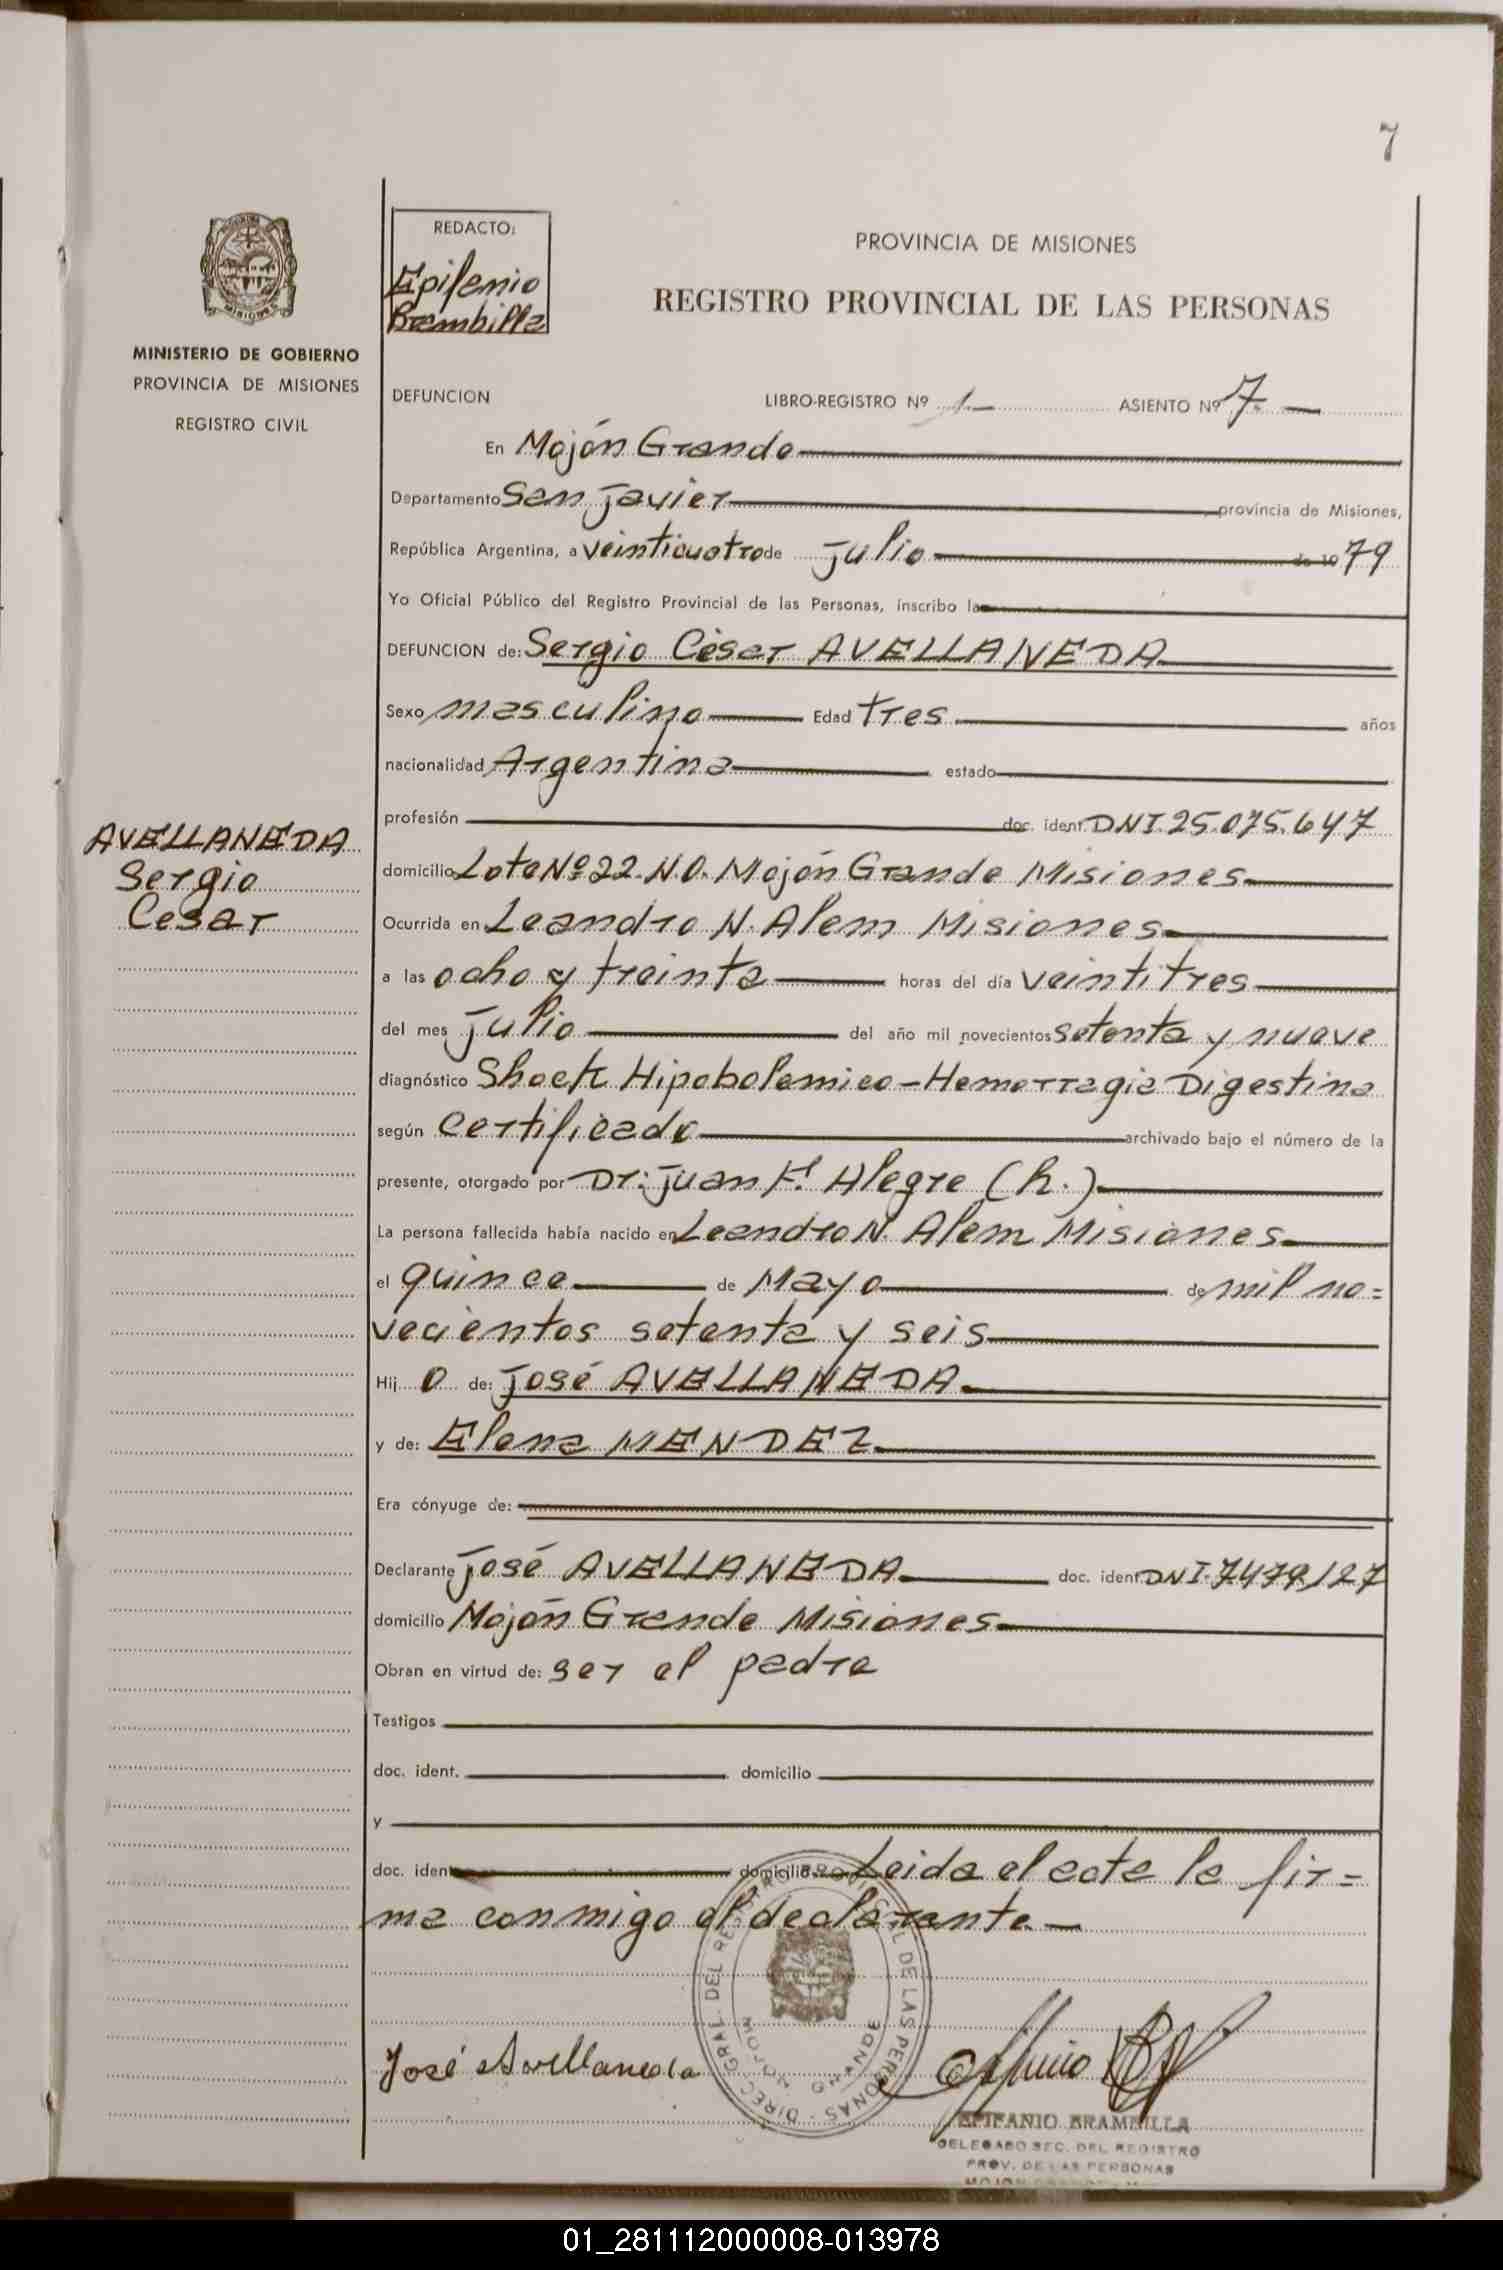 7
REDACTO:
Epifanio
Brambilla
PROVINCIA DE MISIONES
REGISTRO PROVINCIAL DE LAS PERSONAS
MINISTERIO DE GOBIERNO
PROVINCIA DE MISIONES
REGISTRO CIVIL
DEFUNCION LIBRO-REGISTRO Nº 1 ASIENTO Nº 7
En Mojón Grande
Departamento San Javier provincia de Misiones,
República Argentina, a veinticuatro de Julio de 1979
Yo Oficial Público del Registro Provincial de las Personas, inscribo la
DEFUNCION de: Sergio César AVELLANEDA
Sexo masculino Edad tres años
nacionalidad Argentina estado
profesión doc. ident. DNI.25.075.647
AVELLANEDA
Sergio
Cesar
domicilio Lote Nº 22.N.O. Mojón Grande Misiones
Ocurrida en Leandro N. Alem Misiones
a las ocho y treinta horas del día veintitres
del mes Julio del año mil novecientos setenta y nueve
diagnóstico Shock Hipobolemico-Hemorragia Digestina
según Certificado archivado bajo el número de la
presente, otorgado por Dr: Juan F. Alegre (h.)
La persona fallecida había nacido en Leandro N. Alem Misiones
el quince de Mayo de mil no=
vecientos setenta y seis
Hij o de: José AVELLANEDA
y de: Elena MENDEZ
Era cónyuge de:
Declarante José AVELLANEDA doc. ident DNI.7479127
domicilio Mojón Grande Misiones
Obran en virtud de: ser el padre
Testigos
doc. ident. domicilio
y
doc. ident domicilio Leida el acta la fir=
ma conmigo el declarante.
José Avellaneda
DIREC. GRAL. DEL REGISTRO PROVINCIAL DE LAS PERSONAS
MOJON GRANDE
EPIFANIO BRAMBILLA
DELEGADO SEC. DEL REGISTRO
PROV. DE LAS PERSONAS
01_281112000008-013978